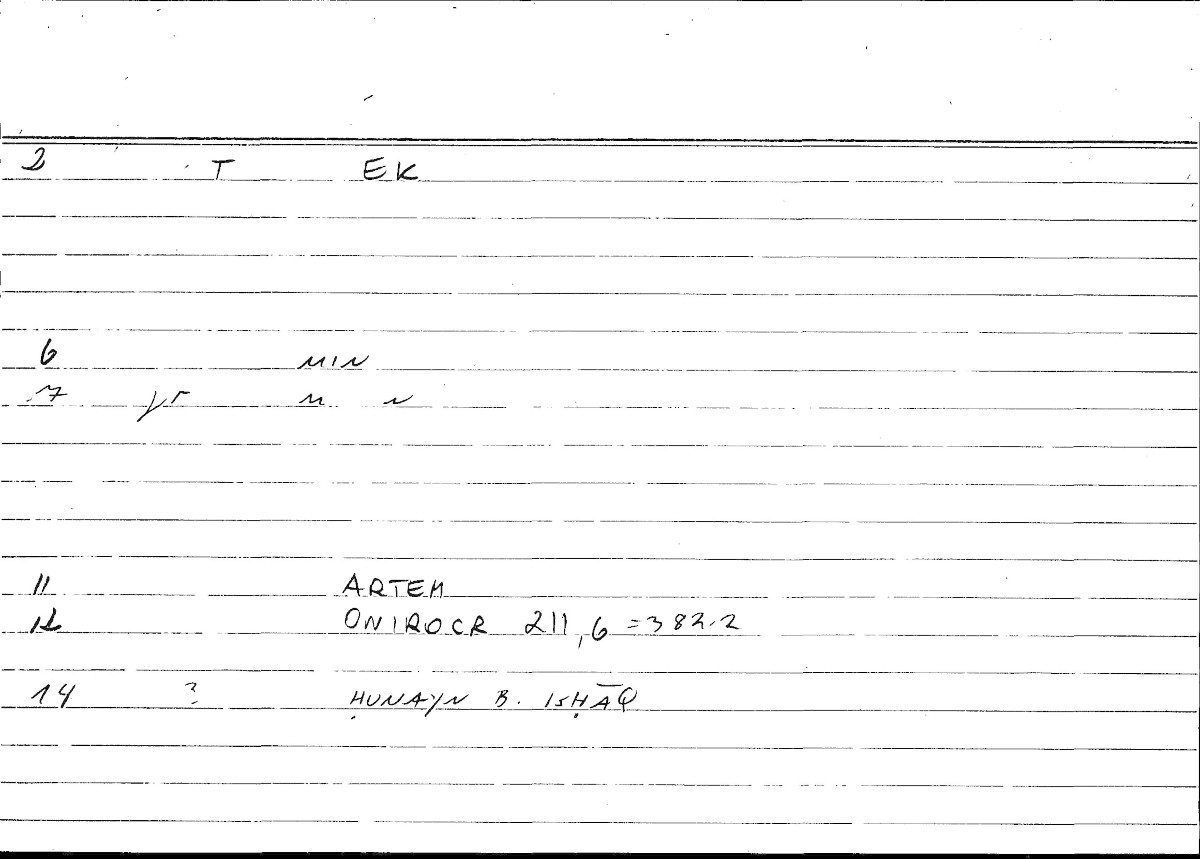 2 T EK
6 MIN
7 γτ N N
11 ARTEM
12 ONIROCR 211,6 =382.2
14 ? ḤUNAYN B. ISḤĀQ